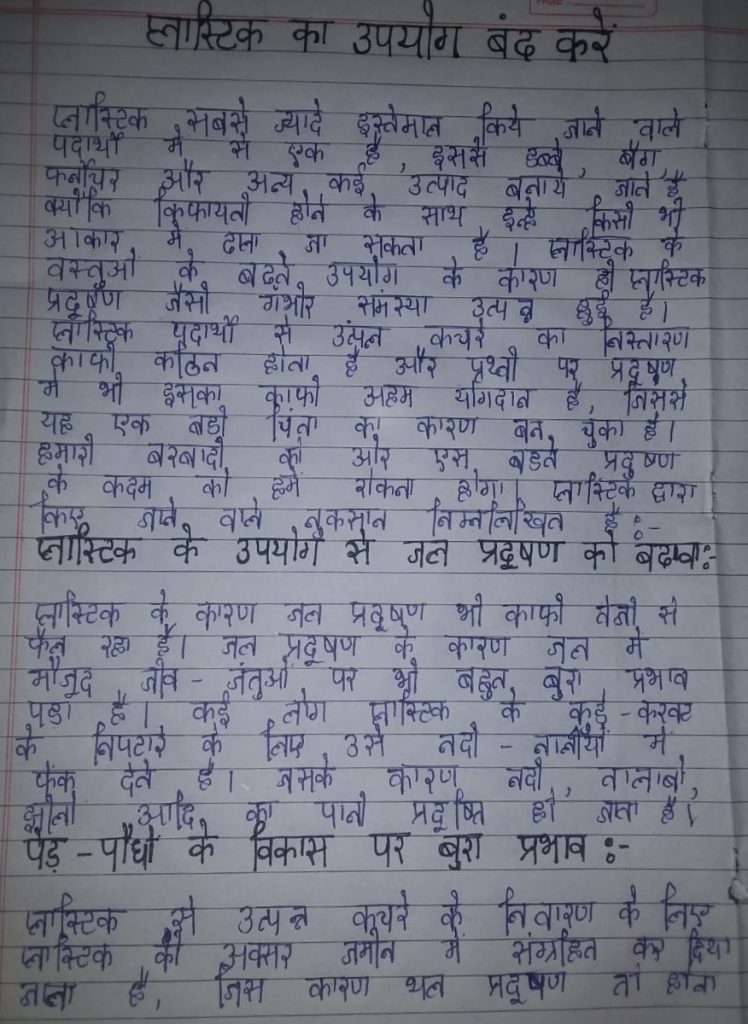 प्लास्टिक का उपयोग बंद करें
प्लास्टिक सबसे ज्यादे इस्तेमाल किये जाने वाले
पदार्थो में से एक है, इससे डब्बे, बैग,
फर्नीचर और अन्य कई उत्पाद बनाये जाते है
क्योंकि किफायती होने के साथ इन्हे किसी भी
आकार में ढाला जा सकता है। प्लास्टिक के
वस्तुओं के बढते उपयोग के कारण ही प्लास्टिक
प्रदूषण जैसी गंभीर समस्या उत्पन्न हुई है।
प्लास्टिक पदार्थो से उत्पन कचरे का निस्तारण
काफी कठिन होता है और प्रथ्वी पर प्रदूषण
में भी इसका काफी अहम योगदान है, जिससे
यह एक बडी चिंता का कारण बन चुका है।
हमारी बरबादी की ओर एस बडते प्रदुषण
के कदम को हमें रोकना होगा। प्लास्टिक द्वारा
किए जाने वाले नुकसान निम्नलिखित है:-
प्लास्टिक के उपयोग से जल प्रदूषण को बढावा:-
प्लास्टिक के कारण जल प्रदूषण भी काफी तेजी से
फैल रहा है। जल प्रदूषण के कारण जल में
मौजूद जीव - जंतुओं पर भी बहुत बुरा प्रभाव
पड़ा है। कई लोग प्लास्टिक के कुड़े - करकट
के निपटारे के लिए उसे नदी - नालीयों में
फेंक देते है। जसके कारण नदी, तालाबो,
झीलो आदि का पानी प्रदूषित हो जाता है।
पेड़ - पौधों के विकास पर बुरा प्रभाव :-
प्लास्टिक से उत्पन्न कचरे के निवारण के लिए
प्लास्टिक को अक्सर जमीन में संग्रहित कर दिया
जाता है, जिस कारण थल प्रदूषण तो होता